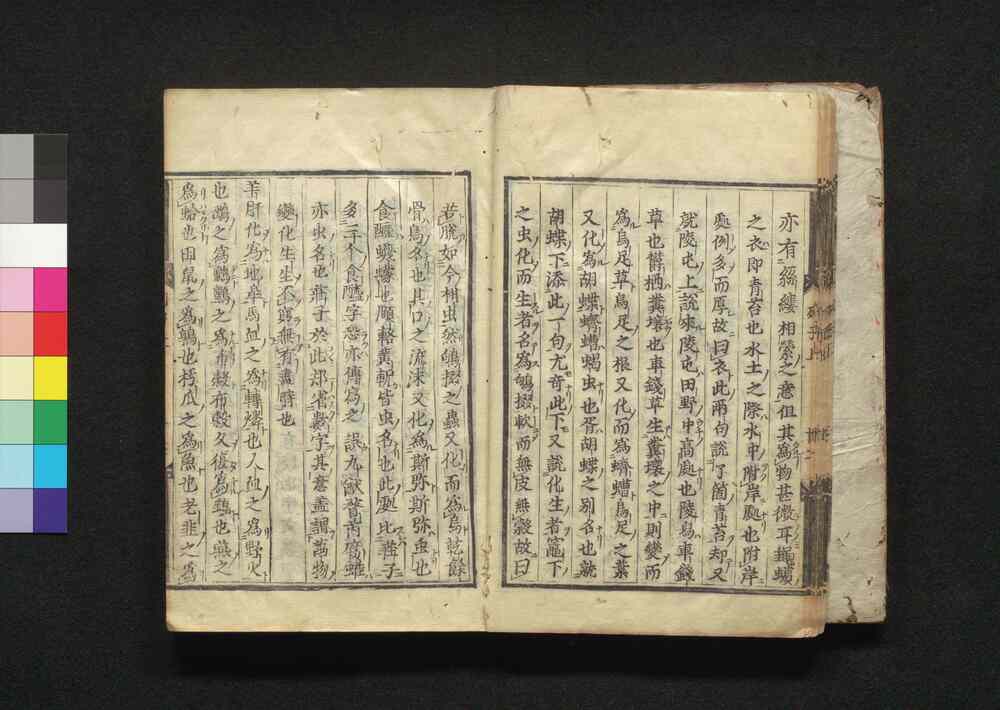 亦有絲縷相縈之意但其為物甚微耳鼃蠙
之衣即青苔也水土之際水中附岸處也附岸
處例多而厚故曰衣此兩句說了箇青苔却又
就陵屯上說來陵屯田野中高處也陵舄車錢
草也欝栖糞壤也車錢草生糞壤之中則變而
為烏足草烏足之根又化而為蠐螬烏足之葉
又化為胡蝶蠐螬蝎虫也胥胡蝶之別名也就
胡蝶下添此一句尤奇此下又說化生者竈下
之虫化而生者名為鴝掇軟而無皮無殼故曰
若脫如今柑虫然鴝掇之蟲又化而為鳥乾餘
骨鳥名也其口之流沫又化為斯弥斯弥虫也
食醯蠛蠓也頤輅黃軦皆虫名也此處比莊子
多三个食醯字恐亦傳寫之誤九猷瞀芮腐蠸
亦虫名也莊子於此郤省數字其意盖謂萬物
變化生生不窮無有盡時也
羊肝化為地皋馬血之為轉燐也人血之為野火
也鷂之為鸇鸇之為布穀布穀久復為鷂也燕之
為蛤也田鼠之為鶉也朽瓜之為魚也老韭之為